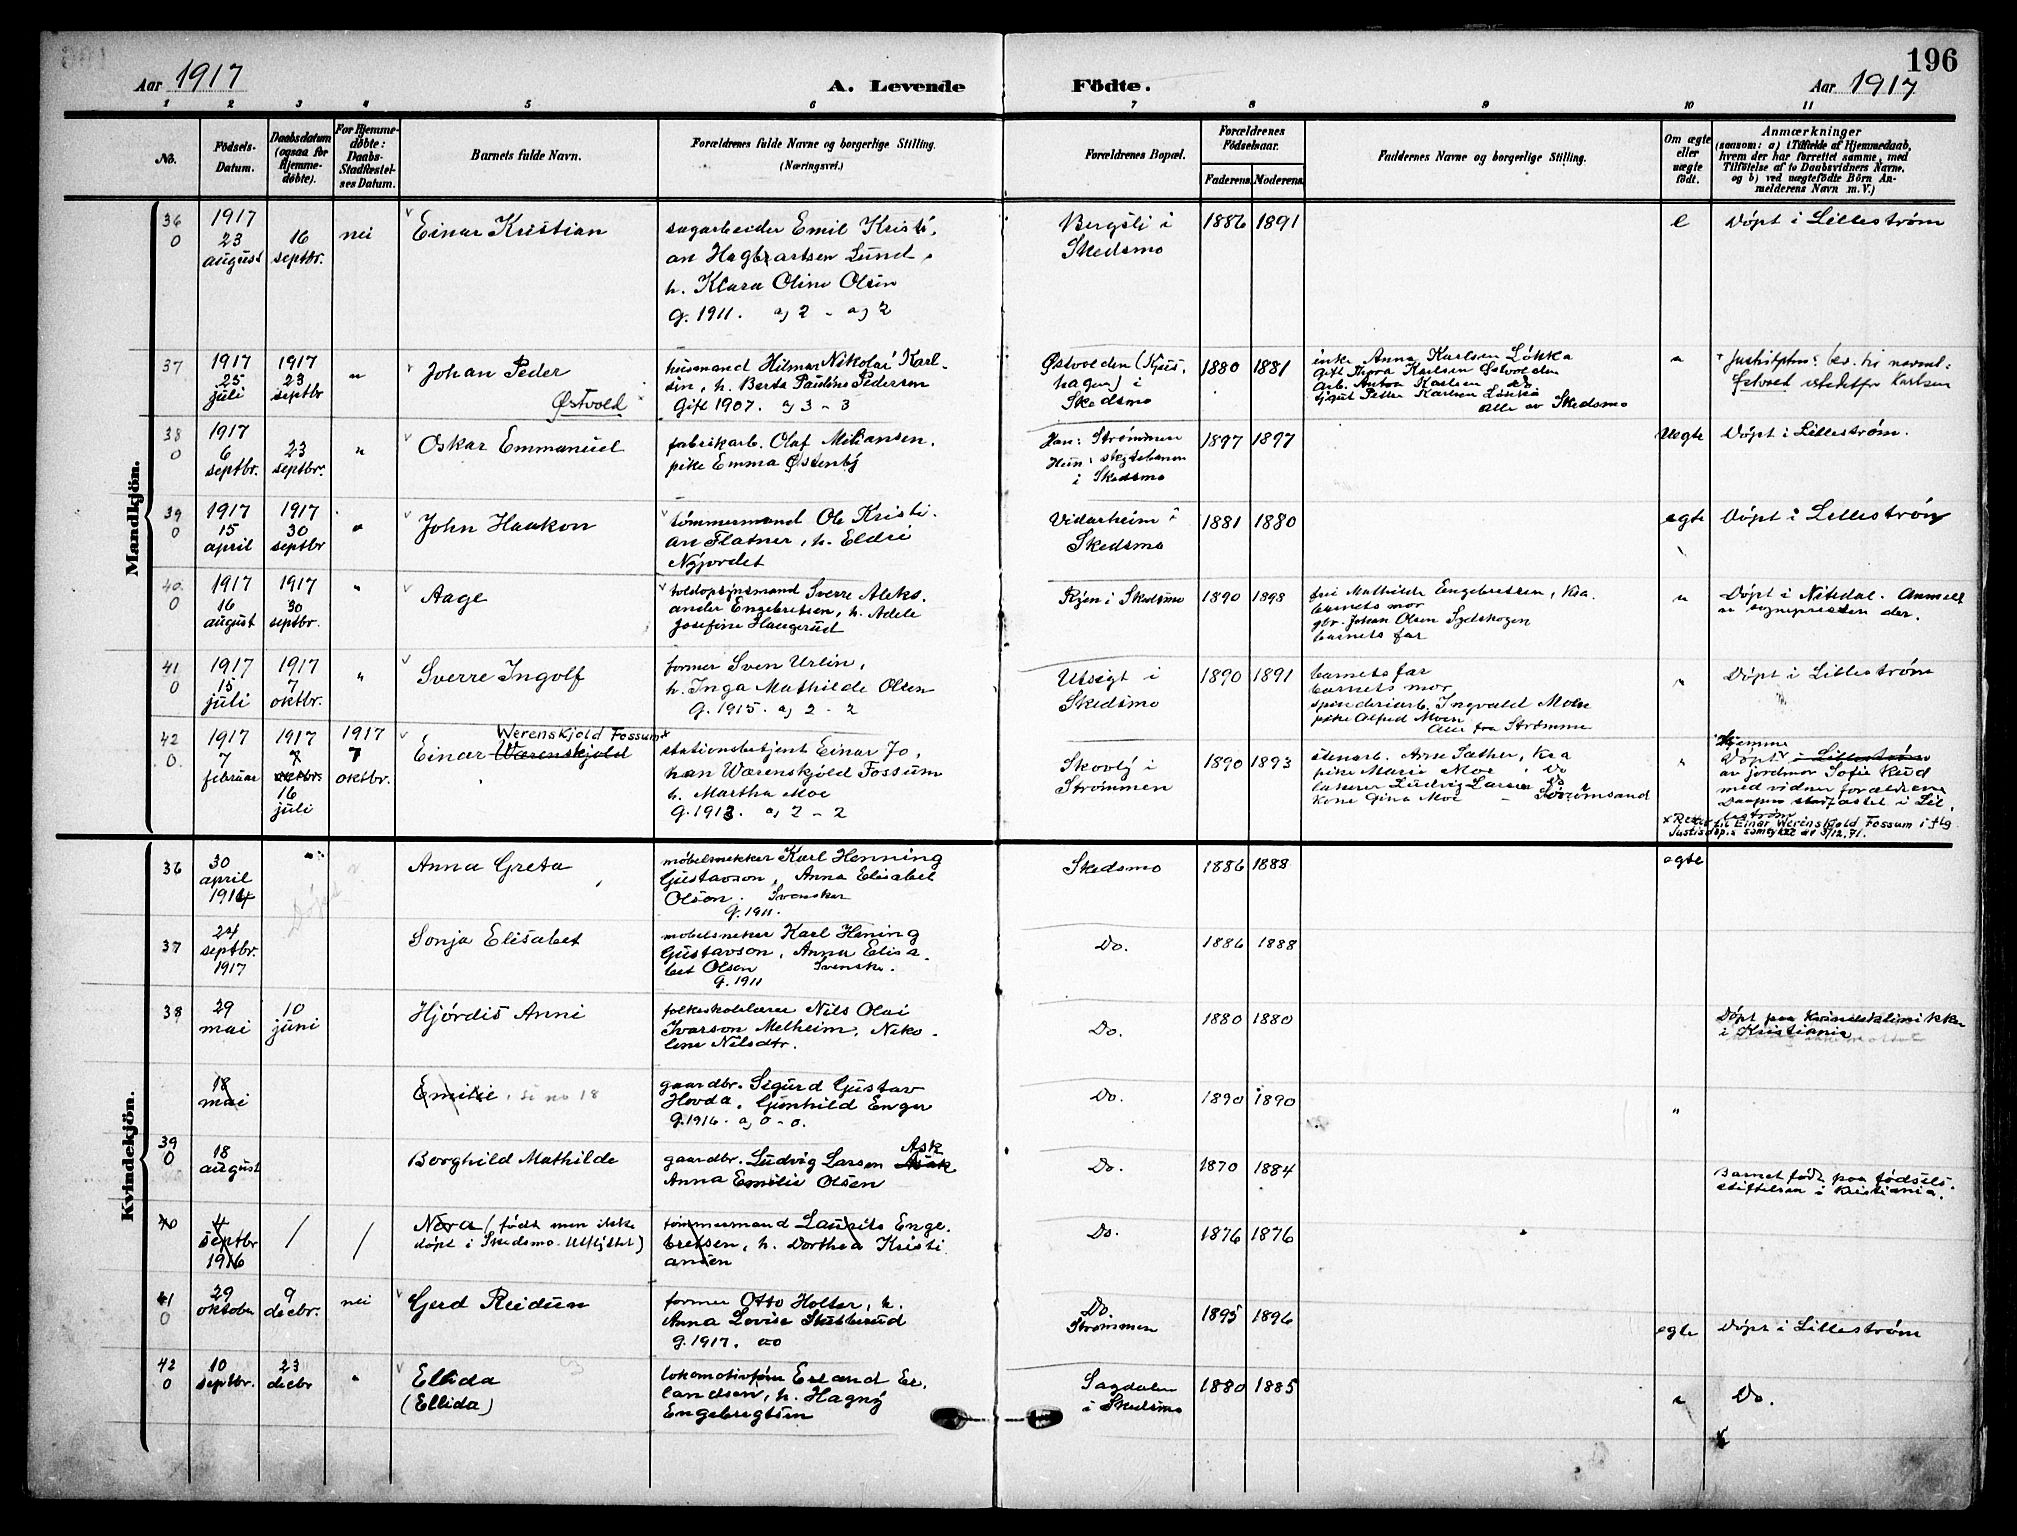 196
Aar 1917
A. Levende Födte.
Aar 1917
1 2 3 4 5 6 7 8 9 10 11
No.
Födsels-Datum.
Daabsdatum (ogsaa for Hjemme-döbte).
For Hjemme-döbte: Daabs-Stadfæstel-ses Datum.
Barnets fulde Navn.
Forældrenes fulde Navne og borgerlige Stilling. (Næringsvei.)
Forældrenes Bopæl.
Forældrenes Födselsaar.
Faderens. Moderens.
Faddernes Navne og borgerlige Stilling.
Om ægte eller uægte födt.
Anmærkninger
(saasom: a) i Tilfælde af Hjemmedaab, hvem der har forrettet samme, med Tilföielse af to Daabsvidners Navne, og b) ved uægtefödte Börn Anmelderens Navn m. V.)
Mandkjön.
36
0
1917
23
august
16
septbr.
nei
Einar Kristian
sagarbeider Emil Kristi-
an Hagbartsen Lund,
h. Klara Oline Olsen
G. 1911. a) 2 - a) 2
Bergsli i
Skedsmo
1886 1891
e
Døpt i Lillestrøm
37
1917
25
juli
1917
23
septbr
"
Johan Peder
Østvold
husmand Hilmar Nikolai Karl-
sen, h. Berta Pauline Pedersen
Gift 1907. a) 3 - 3
Østvolden (Hjus
hagen) i
Skedsmo
1880 1881
enke Anna Karlsen Løkka
Gift Thora Karlsen Østvolden
arb. Anton Karlsen do
Petter Karlsen Løkka
alle av Skedsmo
"
Østvold istedetfor Karlsen
38
0
1917
6
septbr.
23
septbr.
"
Oskar Emmanuel
fabrikarb. Olaf Meliansen.
pike Emma Østenby
Han: Strømmen
Hun:
i Skedsmo
1897 1897
Uegte
Døpt i Lillestrøm.
39
0
1917
15
april
1917
30
septbr
"
John Haakon
tømmermand Ole Kristi-
an Flatner, h. Eldri
Nyjordet
Vidarheim i
Skedsmo
1881 1880
egte
Døpt i Lillestrøm
40
0
1917
16
august
1917
30
septbr.
"
Aage
toldopsynsmand Sverre Aleks-
ander Engebretsen, h. Adele
Josefine Haugerud
Ryen i Skedsmo
1890 1898
fru Mathilde Engebretsen, Kra.
barnets mor
gbr. Johan Olsen Sydskogen
barnets far
"
Døpt i Nitedal. Anmeldt
av sognepresten der.
41
0
1917
15
juli
1917
7
oktbr.
"
Sverre Ingolf
former Sven Urlin,
h. Inga Mathilde Olsen
G. 1915. a) 2 - 2
Utsigt i
Skedsmo
1890 1891
barnets far
barnets mor
spinderiarb. Ingvald Moen
pike Alfred Moen
Alle fra Strømmen
"
Døpt i Lillestrøm
42
0.
1917
7
februar
1917
7
oktbr.
16
juli
1917
7
oktbr.
Werenskjold Fossum x
Einar Wærenskjold
stationsbetjent Einar Jo-
han Wærenskjold Fossum
h. Martha Moe
G. 1913. a) 2 - 2
Skovly i
Strømmen
1890 1893
stenarb. Arne Sæther, Kra
pike Marie Moe Do
lakerer Ludvig Larsen Do
kone Gina Moe - Sørumsand
"
Hjemme
Døpt i Lillestrøm
av jordmor Sofie Ruud
med vidner forældrene
Daapen stadfæstet i Lil-
lestrøm
x Rettet til Einar Werenskjold Fossum i flg.
Justisdep.s samtykke av 3/12.71.
Kvindekjön.
36
30
april
1914
Anna Greta
møbelsnekker Karl Henning
Gustavson, Anna Elisabet
Olson. Svensker
G. 1911.
Skedsmo
1886 1888
egte
37
24
septbr.
1917
Sonja Elisabet
møbelsneker Karl Hening
Gustavson, Anna Elisa-
bet Olson Svenske.
G. 1911
Do.
1886 1888
38
29
mai
10
juni
Hjørdis Anni
folkeskolelærer Nils Olai
Ivarson Melheim, Niko-
line Nilsdtr.
Do.
1880 1880
Døpt paa Kvindeklinikken
i Kristiania
18
mai
Emilie, se no 18
gaardbr. Sigurd Gustav
Hovda, Gunhild Enger
G. 1916. a) 0 - 0.
Do.
1890 1890
"
39
0
18
august
Borghild Mathilde
gaardbr. Ludvig Larsen Ask
Anna Emilie Olsen
Do.
1870 1884
Barnet født paa fødsels-
stiftelsen i Kristiania.
40
4
septbr
1916
/ /
Nora (født men ikke
døpt i Skedsmo. Utflyttet)
tømmermand Laurits Enge-
bretsen, h. Dorthea Kristi
ansen
Do.
1876 1876
41
0
29
oktober
9
decbr.
nei
Gerd Reidun
former Otto Holter, h.
Anna Lovise Stusterud
G. 1917. oo
Do.
Strømmen
1895 1896
egte
Døpt i Lillestrøm
42
0
10
septbr.
23
decbr
"
Elida
(Ellida)
lokomotivfører Erland Er-
landsen, h. Hagny
Engebregtsen
Sagdalen
i Skedsmo
1880 1885
"
Do.